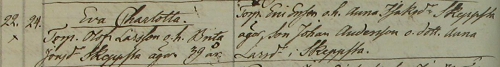 22. 24. Eva Charlotta. Torp. Eric Ersson o. h. Anna Isaksd. i Skeppsta
x Torp. Olof Larsson o. h. Brita ägor, Son Johan Andersson o. dott. Anna
Jonsd. Skeppsta ägor 39 år. Larsd. i Skeppsta.